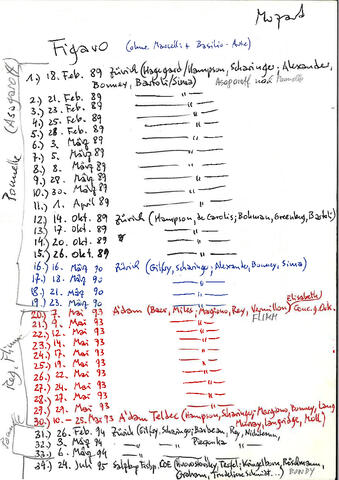 Mozart
Figaro (ohne Marcelli + Basilio-Arie)
1.) 18. Feb. 89 Zürich (Hagegard/Hampson, Scharinger, Alexander,
Bonney, Bartoli/Sima)
2.) 21. Feb. 89 — " —
3.) 23. Feb. 89 — " —
4.) 25. Feb. 89 — " —
5.) 28. Feb. 89 — " —
6.) 3. März 89 — " —
7.) 5. März 89 — " —
8.) 8. März 89 — " —
9.) 28. März 89 — " —
10.) 30. März 89 — " —
11.) 1. April 89 — " —
12.) 14. Okt. 89 Zürich (Hampson, de Carolis; Bohman, Greenberg, Bartoli)
13.) 17. Okt. 89 — " —
14.) 20. Okt. 89 — " —
15.) 26. Okt. 89 — " —
16.) 16. März 90 Zürich (Gilfry, Scharinger, Alexander, Bonney, Sima)
17.) 18. März 90 — " —
18.) 21. März 90 — " —
19.) 23. März 90 — " —
20.) 7. Mai 93 A'dam (Baer, Miles; Margiono, Rey, Vermillon) Conc.g.Ork.
Elisabeth
FLIMM
21.) 9. Mai 93 — " —
22.) 12. Mai 93 — " —
23.) 14. Mai 93 — " —
24.) 17. Mai 93 — " —
25.) 19. Mai 93 — " —
26.) 22. Mai 93 — " —
27.) 24. Mai 93 — " —
28.) 27. Mai 93 — " —
29.) 29. Mai 93 — " —
30.) 10. – 25. Mai 93 A'dam Teldec (Hampson, Scharinger, Margiono, Bonney, Lang
Murray, Langridge, Moll)
31.) 26. Feb. 94 Zürich (Gilfry, Scharinger; Rey,
32.) 3. März 94 — " —
33.) 6. März 94 — " —
34.) 24. Juli 95 Salzburg Festsp. COE (Hvorostovsky, Terfel; Röschmann,
Graham,
BONDY
Ponnelle (Asagaroff)
Reg. Flimm
Ponnelle